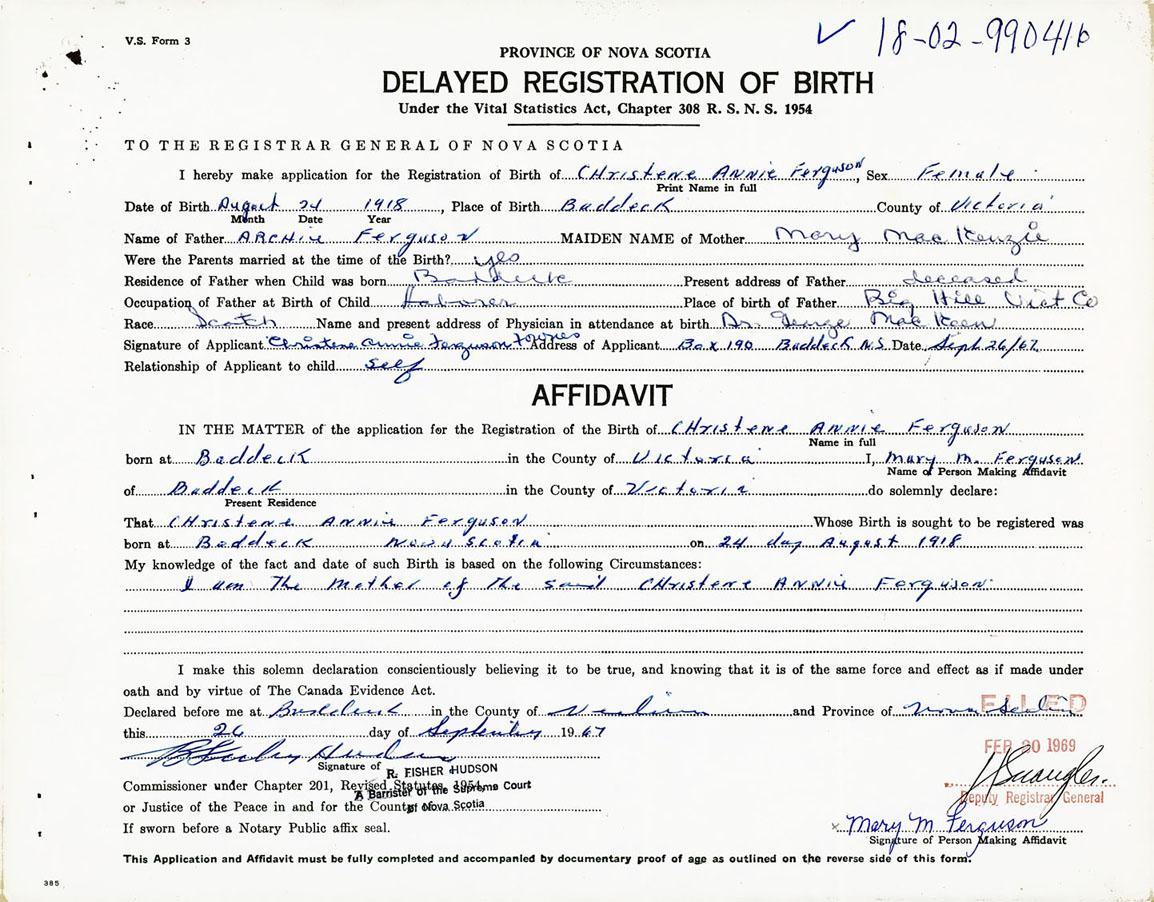 V.S. Form 3
✓ 18-02-990416
PROVINCE OF NOVA SCOTIA
DELAYED REGISTRATION OF BIRTH
Under the Vital Statistics Act, Chapter 308 R. S. N. S. 1954
TO THE REGISTRAR GENERAL OF NOVA SCOTIA
I hereby make application for the Registration of Birth of CHristene ANNie Ferguson, Sex Female
Print Name in full
Date of Birth August 24 1918, Place of Birth Baddeck County of Victoria
Month Date Year
Name of Father ARCHie Ferguson MAIDEN NAME of Mother Mary MacKenzie
Were the Parents married at the time of the Birth? yes
Residence of Father when Child was born Baddeck Present address of Father deceased
Occupation of Father at Birth of Child Laborer Place of birth of Father Big Hill Vict Co
Race Scotch Name and present address of Physician in attendance at birth Dr. George MacKeen
Signature of Applicant Christene Annie Ferguson Address of Applicant Box 190 Baddeck N.S. Date Sept 26/67
Relationship of Applicant to child self
AFFIDAVIT
IN THE MATTER of the application for the Registration of the Birth of CHristene ANNie Ferguson
Name in full
born at Baddeck in the County of Victoria I, Mary M. Ferguson
Name of Person Making Affidavit
of Baddeck in the County of Victoria do solemnly declare:
Present Residence
That CHristene ANNie Ferguson Whose Birth is sought to be registered was
born at Baddeck Nova Scotia on 24 day August 1918
My knowledge of the fact and date of such Birth is based on the following Circumstances:
I am The Mother of the said CHristene ANNie Ferguson
I make this solemn declaration conscientiously believing it to be true, and knowing that it is of the same force and effect as if made under
oath and by virtue of The Canada Evidence Act.
Declared before me at Baddeck in the County of Victoria and Province of Nova Scotia
FILED
this 26 day of September 1967
FEB 20 1969
Signature of R. FISHER HUDSON
Commissioner under Chapter 201, Revised Statutes, 1954,
A Barrister of the Supreme Court
Deputy Registrar General
or Justice of the Peace in and for the County of
of Nova Scotia
Mary M Ferguson
If sworn before a Notary Public affix seal.
Signature of Person Making Affidavit
This Application and Affidavit must be fully completed and accompanied by documentary proof of age as outlined on the reverse side of this form.
385